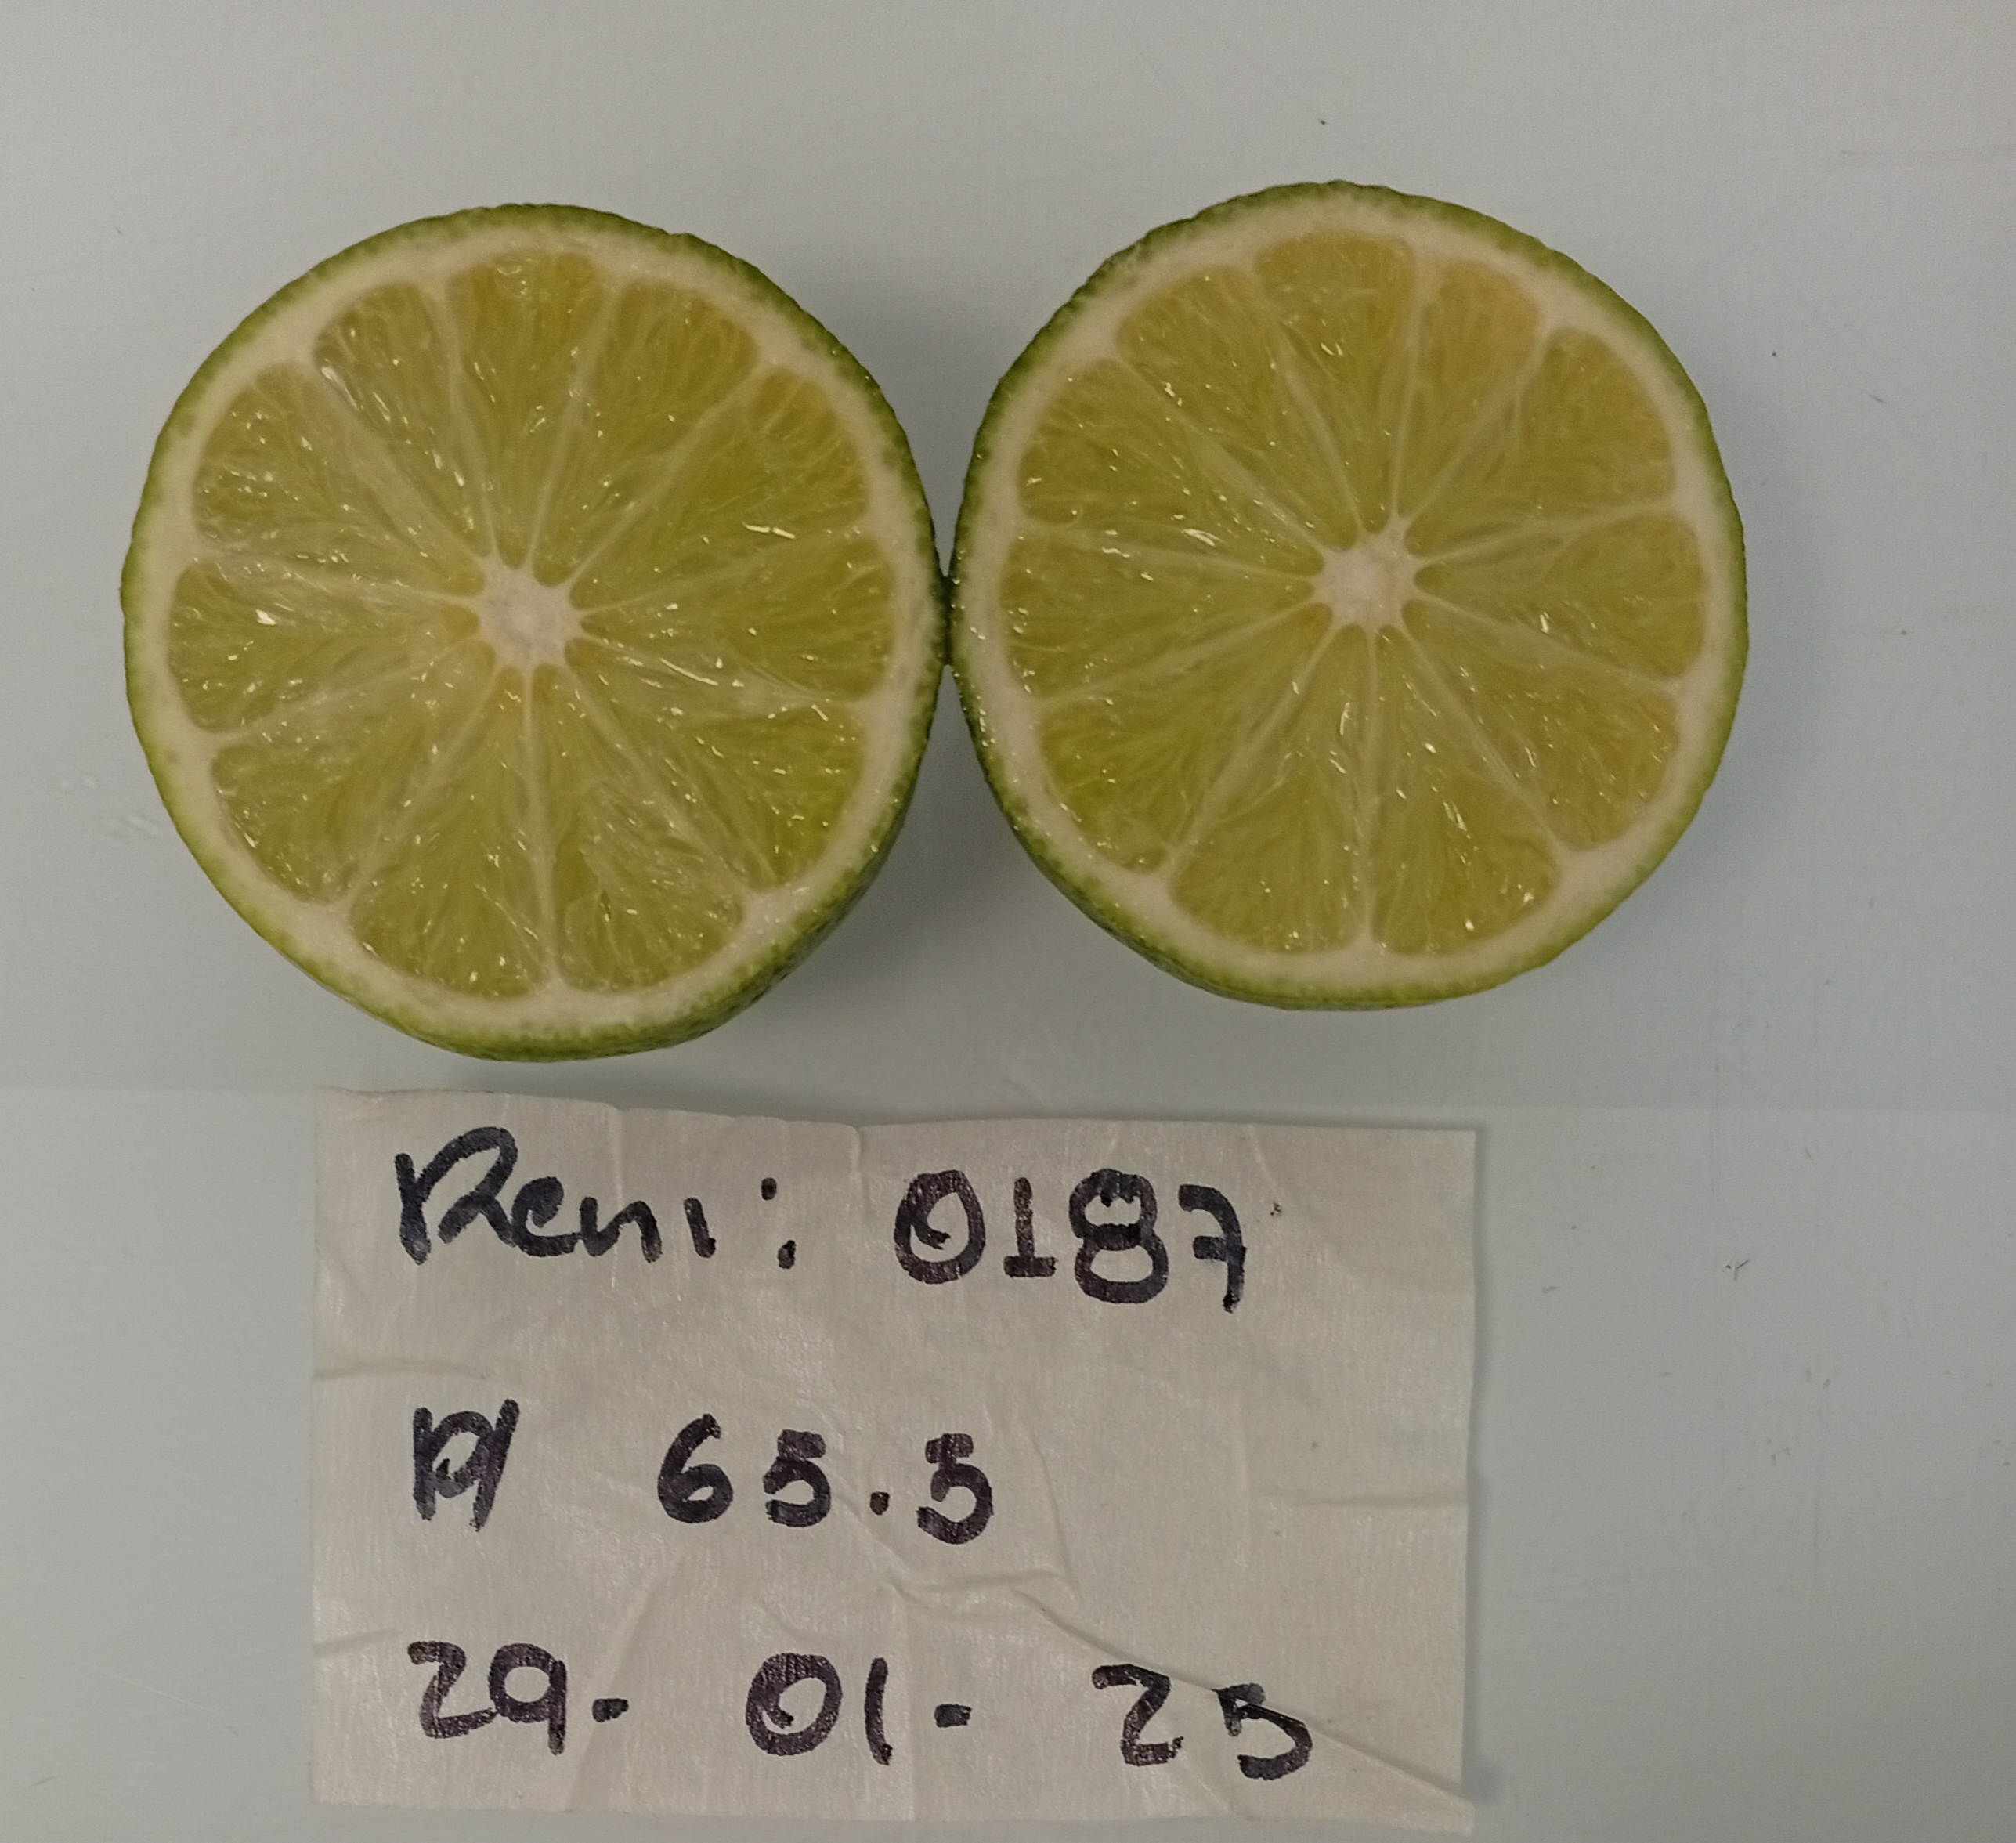 Remi: 0187
65.5
29-01-25